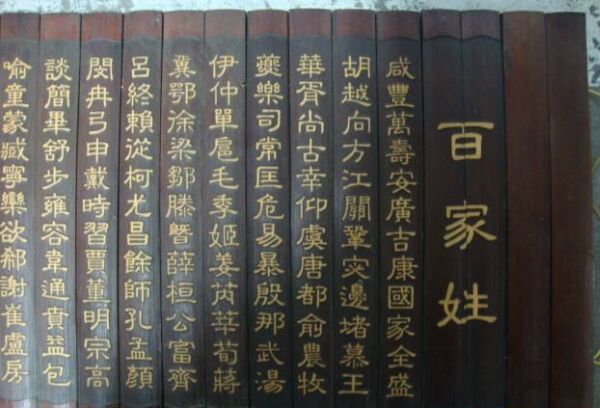 百家姓
咸豐萬壽安廣吉康國家全盛
胡越向方江關鞏灾邊堵慕王
華胥尚古幸仰虞唐都俞農牧
夔樂司常匡危易暴殷那武湯
伊仲單扈毛季姬姜芮莘荀蔣
冀鄂涂梁鄒滕曁薛桓公富齊
呂終賴從柯尤昌餘師孔孟顏
閔冉弓申戴時習賈董明宗高
談簡畢舒步雍容韋通賁益包
喻童蒙臧寧欒欲郗謝崔盧房